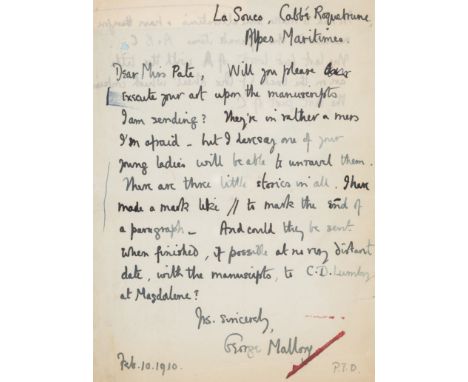 La Souco, Cabbé Roquebrune,
Alpes Maritimes.
Dear Miss Pate, Will you please
execute your art upon the manuscripts
I am sending? They're in rather a mess
I'm afraid - but I daresay one of your
young ladies will be able to unravel them.
There are three little stories in all. I have
made a mark like // to mark the end of
a paragraph - And could they be sent
when finished, if possible at no very distant
date, with the manuscripts, to C. D. Lumby
at Magdalene?
Yrs. sincerely,
George Mallory
Feb. 10. 1910.
P.T.O.